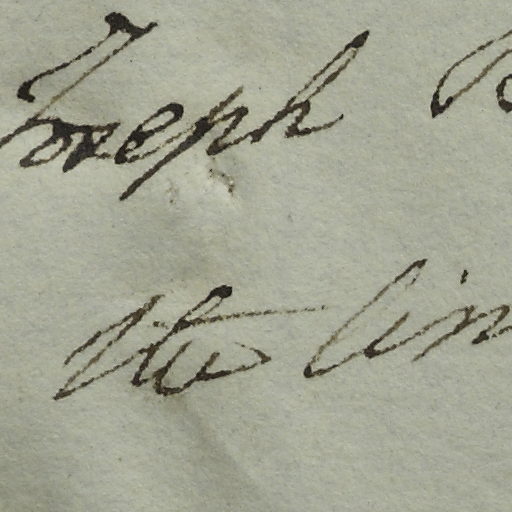 Joseph
the lin